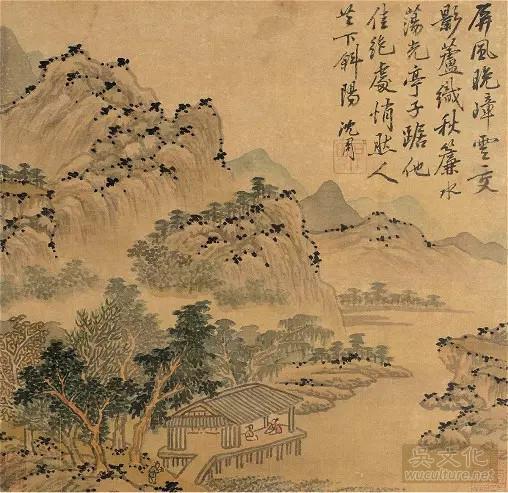 屏風晚嶂雲交
影蘆織秋簾水
蕩光亭子踞他
佳絕處悄人
下斜陽 沈周
吳文化
www.wuculture.net